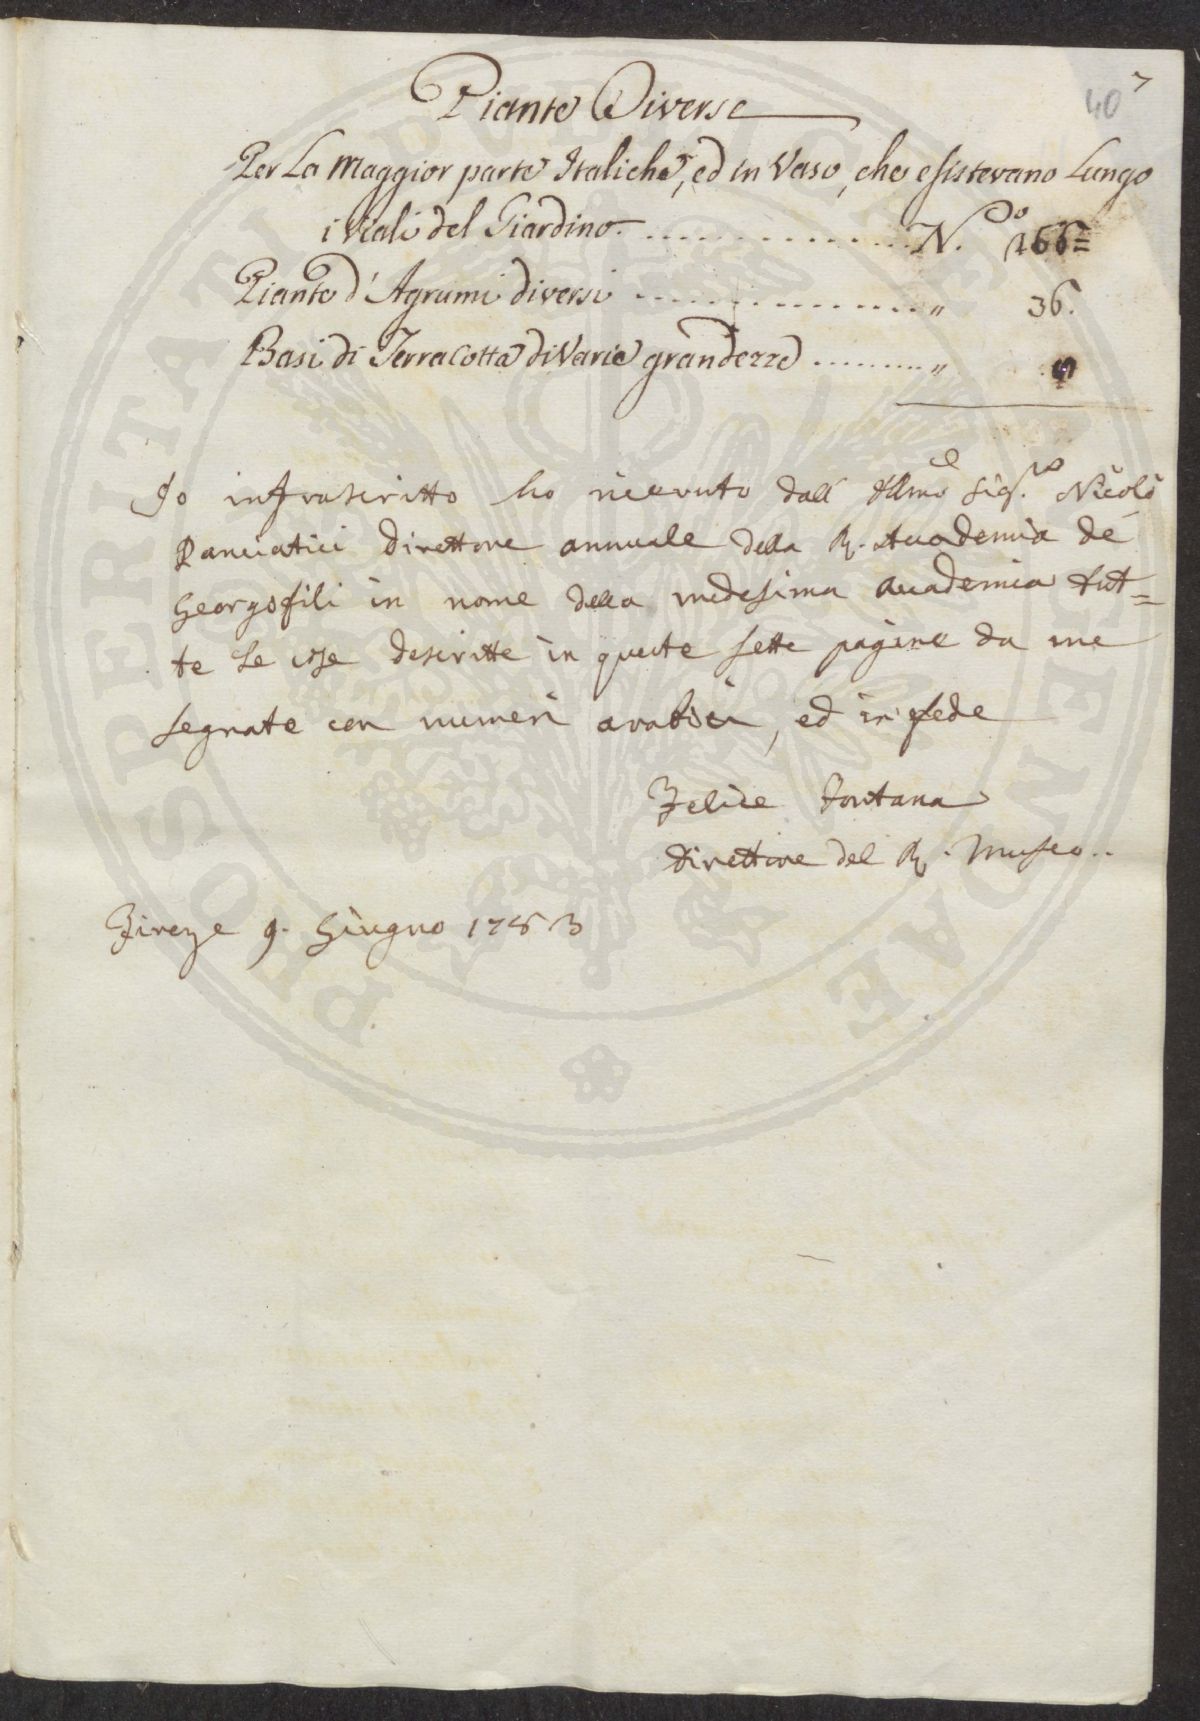 7
40
Piante Diverse
Per La Maggior parte Italiche, ed in Vaso, che esistevano Lungo
i Viali del Giardino. . . . . . . . . . . . . . N.º 166=
Piante d'Agrumi diversi . . . . . . . . . . . . . . „ 36.
Basi di Terracotta di Varie grandezze . . . . . . . . . „
Io infrascritto ho ricevuto dall Illmo Sigre Nicolò
Panciatici Direttore annuale della R. Accademia de
Georgofili in nome della medesima Accademia tut=
te le cose descritte in queste sette pagine da me
segnate con numeri arabici, ed in fede
Felice Fontana
Direttore del R. Museo..
Firenze 9. Giugno 1783
PROSPERITATI PUBLICAE AUGENDAE